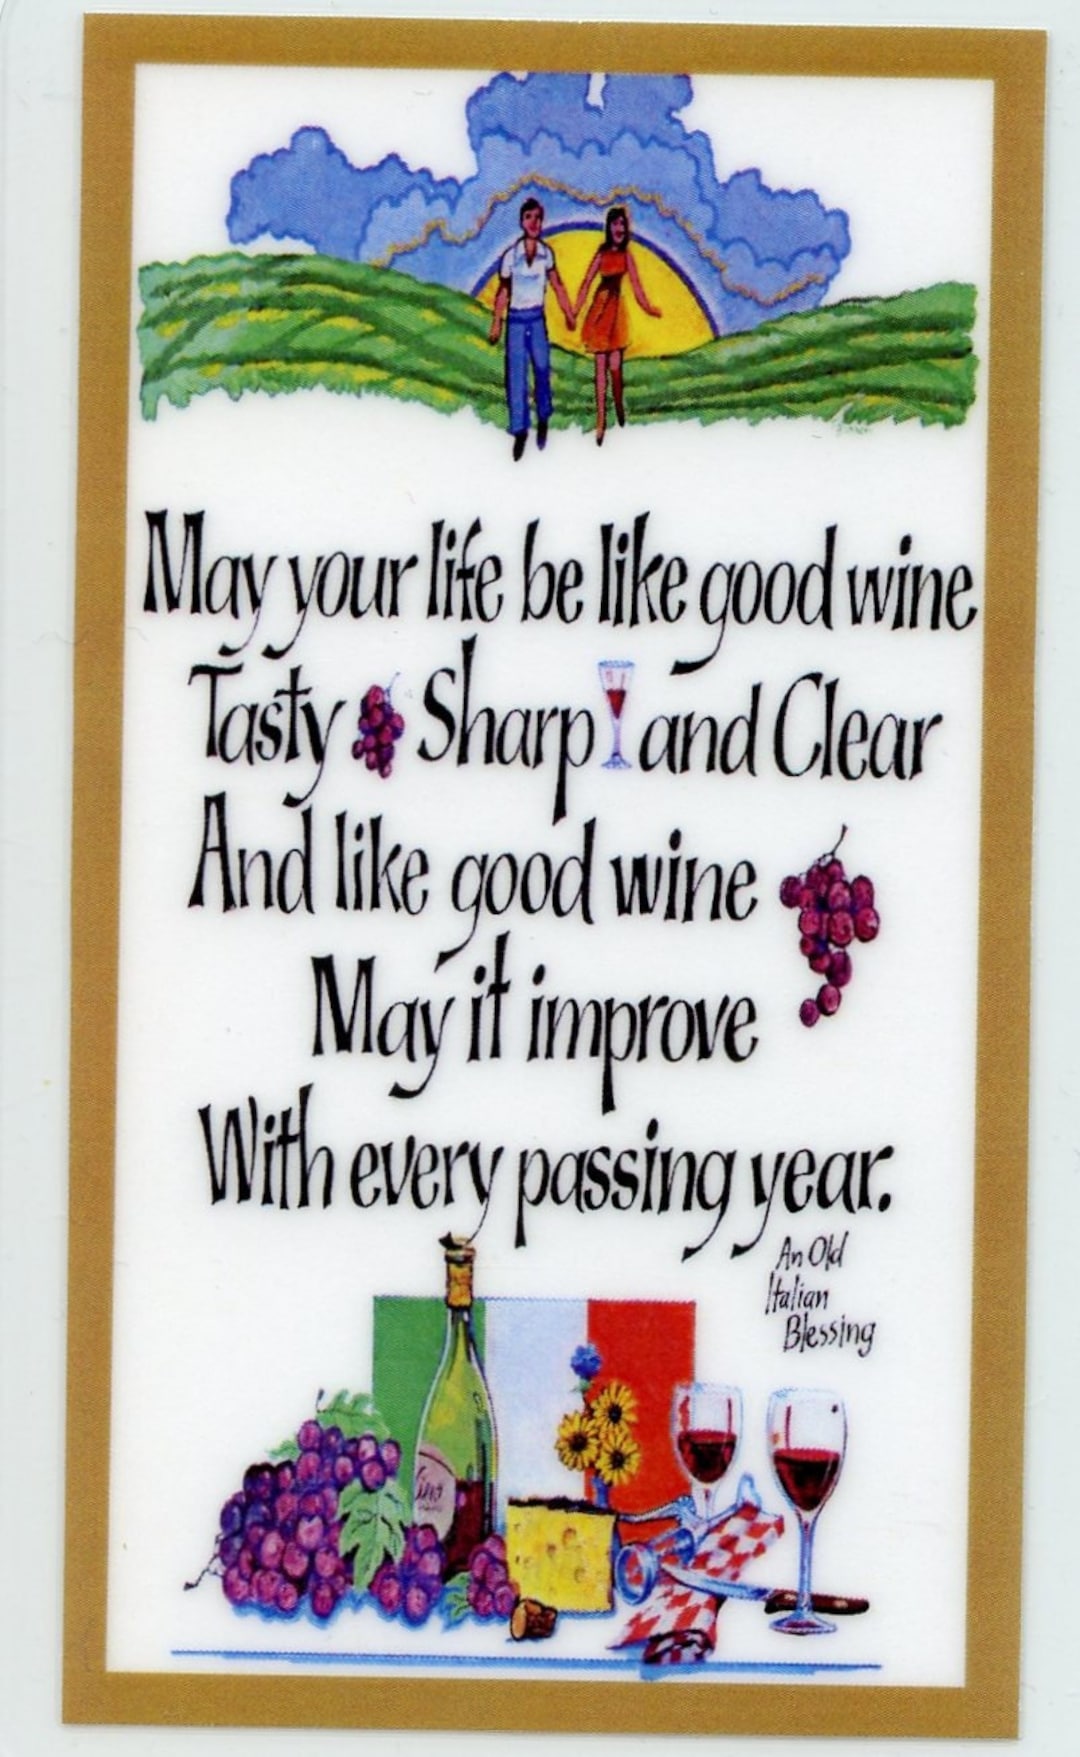 May your life be like good wine
Tasty Sharp and Clear
And like good wine
May it improve
With every passing year.
An Old
Italian
Blessing